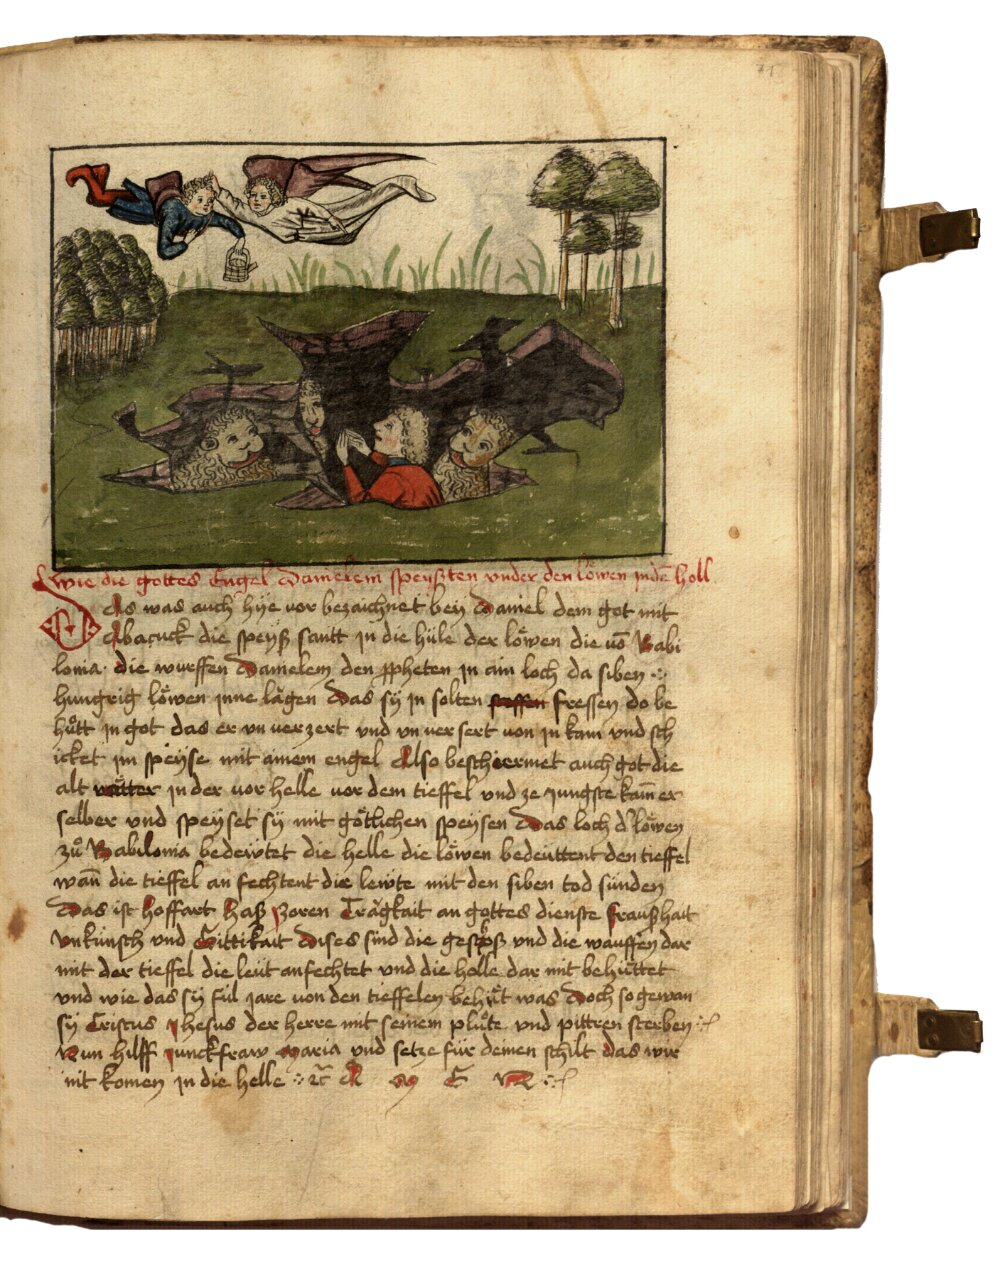 71
Wie die gottes Engel Danielem speyßten vnder den löwen in dē holl
Das was auch hye vor bezaichnet bey Daniel dem got mit
Abacuck die speyß santt in die hüle der löwen die vō Babi
lonia · die wurffen Danielem den ppheten in ain loch da siben
hungrig löwen inne lägen Das sy in solten fressen do be
hůtt in got das er vn verzert vnd vn versert von in kam vnd sch
icket im speyse mit ainem engel Also beschiermet auch got die
alt vätter in der vor helle vor dem tieffel vnd ze jungste kam̄ er
selber vnd speyset sy mit götlichen speysen Das loch d' löwen
zů Babilonia bedewtet die helle die löwen bedeüttent den tieffel
wan̄ die tieffel an fechtent die lewte mit den siben tod sünden
Das ist hoffart Haß Zoren Trägkait an gottes dienste fraußhait
Vnkünsch vnd Gittikait Dises sind die geschoß vnd die wauffen dar
mit der tieffel die leüt anfechtet vnd die helle dar mit behüttet
vnd wie das sy fül jare von den tieffelen behüt was Doch so gewan
sy Cristus Jhesus der herre mit seinem plůte vnd pittren sterben
Nun hilff junckfraw Maria vnd setze für deinen schilt das wir
nit komen in die helle ⁘ ꝛc̄ A M E N ⁘